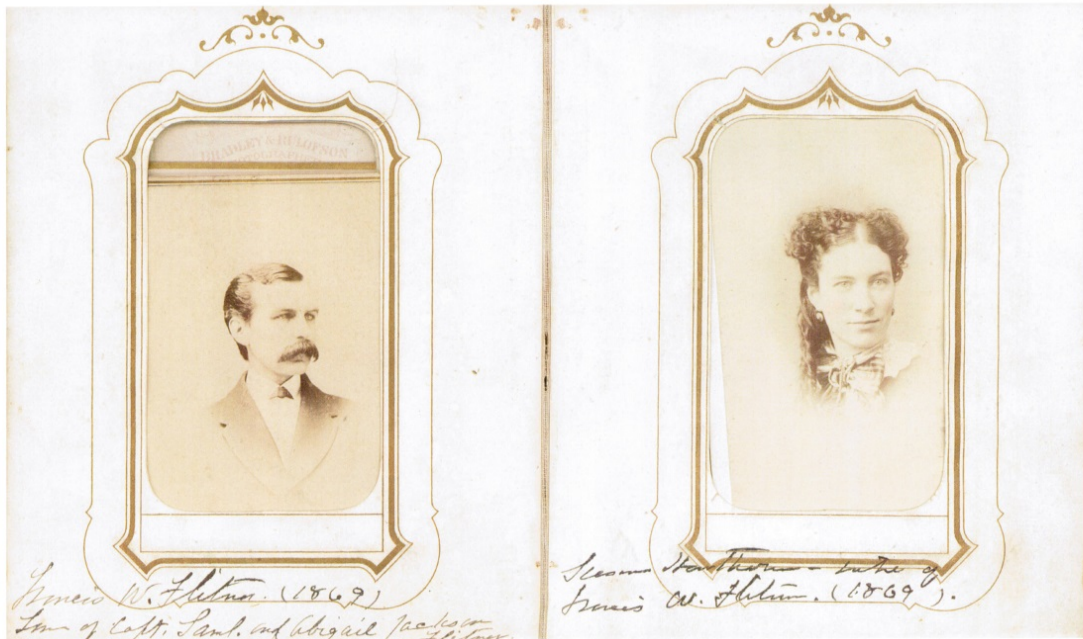 BRADLEY & RULOFSON
Francis W. Flitner. (1869)
Son of Capt. Saml. and Abigail Jackson
Flitner.
Hawthorne - wife of
Francis W. Flitner. (1869).